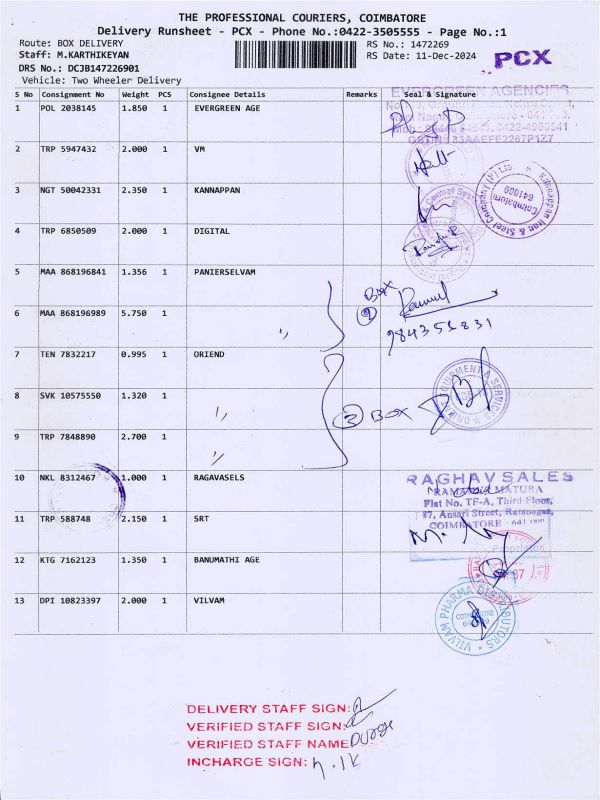 THE PROFESSIONAL COURIERS, COIMBATORE
Delivery Runsheet - PCX - Phone No.:0422-3505555 - Page No.:1
Route: BOX DELIVERY
RS No.: 1472269
Staff: M.KARTHIKEYAN
RS Date: 11-Dec-2024
PCX
DRS No.: DCJB147226901
Vehicle: Two Wheeler Delivery
S No Consignment No Weight PCS Consignee Details Remarks Seal & Signature
EVERGREEN AGENCIES
1 POL 2038145 1.850 1 EVERGREEN AGE
2 TRP 5947432 2.000 1 VM
3 NGT 50042331 2.350 1 KANNAPPAN
Kannappan Iron & Steel Company (P) Ltd
Coimbatore
641009
4 TRP 6850509 2.000 1 DIGITAL
5 MAA 868196841 1.356 1 PANIERSELVAM
BOX
2
6 MAA 868196989 5.750 1 "
7 TEN 7832217 0.995 1 ORIEND
8 SVK 10575550 1.320 1 "
3 BOX
9 TRP 7848890 2.700 1 "
10 NKL 8312467 1.000 1 RAGAVASELS
RAGHAV SALES
Flat No. TF-A, Third Floor,
87, Ansari Street, Ramnagar,
COIMBATORE - 641 009
11 TRP 588748 2.150 1 SRT
12 KTG 7162123 1.350 1 BANUMATHI AGE
13 DPI 10823397 2.000 1 VILVAM
VILVAM PHARMA DISTRIBUTORS
COIMBATORE
DELIVERY STAFF SIGN:
VERIFIED STAFF SIGN:
VERIFIED STAFF NAME
INCHARGE SIGN: